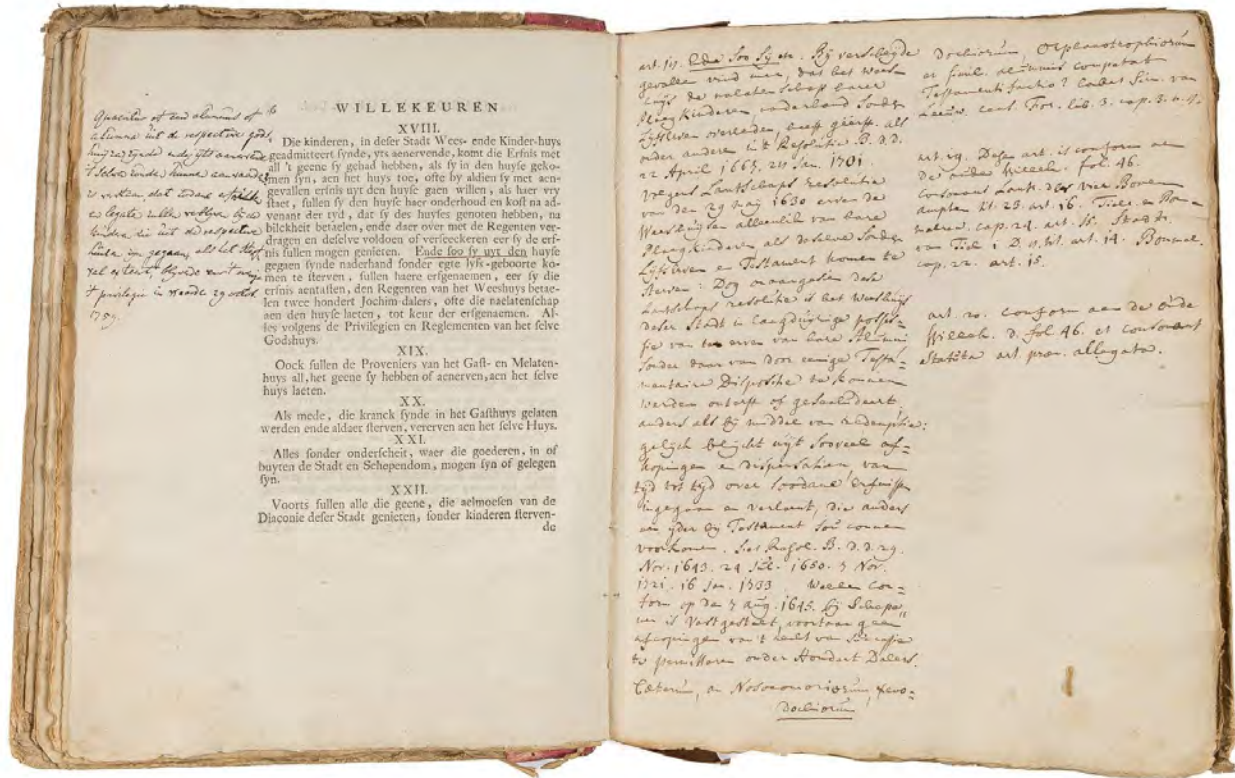 WILLEKEUREN
XVIII.
Die kinderen, in deser Stadt Wees- ende Kinder-huys
geadmitteert synde, yts aenervende, komt die Erfnis met
all 't geene sy gehad hebben, als sy in den huyse geko-
men syn, aen het huys toe, ofte by aldien sy met aen-
gevallen erfnis uyt den huyse gaen willen, als haer vry
staet, sullen sy den huyse haer onderhoud en kost na ad-
venant der tyd, dat sy des huyses genoten hebben, na
bilckheit betaelen, ende daer over met de Regenten ver-
dragen en deselve voldoen of verseeckeren eer sy de erf-
nis sullen mogen genieten. Ende soo sy uyt den huyse
gegaen synde naderhand sonder egte lyfs-geboorte ko-
men te sterven, sullen haere erfgenaemen, eer sy die
erfnis aentasten, den Regenten van het Weeshuys betae-
len twee hondert Jochim-dalers, ofte die naelatenschap
aen den huyse laeten, tot keur der erfgenaemen. Al-
les volgens de Privilegien en Reglementen van het selve
Godshuys.
XIX.
Oock sullen de Proveniers van het Gast- en Melaten-
huys all, het geene sy hebben of aenerven, aen het selve
huys laeten.
XX.
Als mede, die kranck synde in het Gasthuys gelaten
werden ende aldaer sterven, vererven aen het selve Huys.
XXI.
Alles sonder onderscheit, waer die goederen, in of
buyten de Stadt en Schependom, mogen syn of gelegen
syn.
XXII.
Voorts sullen alle die geene, die aelmoesen van de
Diaconie deser Stadt genieten, sonder kinderen sterven-
de
Quaeritur of een alumnus of
alumna uit de respective gods
1759.
art. 18. Ende Soo Sy etc. Bij verscheyde
gevallen vind men, dat het Wees-
huys de nalatenschap harer
Pleegkinderen, naderhand Sonder
Lijfserven overleden, heeft als
onder anderen uit Resolutie B. d. d.
22 April 1665, 24 Jan. 1701.
Volgens Lantschaps resolutie
van den 29 maij 1630 erven de
Weeshuysen alleenlik van hare
Pleegkinderen als deselve Sonder
Lijfserven en Testament komen te
Sterven: Dog onaangesien dese
Lantschaps resolutie is het Weeshuijs
deser Stadt in langdurige posses-
sie van te erven van hare Alumni
Sonder daar van door eenige Testa-
mentaire Dispositie te konnen
werden ontset of
anders als bij middel van redemptie:
gelijck blijckt uijt Sooveel af-
kopingen en dispensatien, van
tijd tot tijd over Soodane erfnissen
ingegaan en verleent, die anders
een ijder bij Testament Sou connen
voorkomen. Siet Resol. B. d. d. 29
Nov. 1643. 24 1650. 7 Nov.
1721. 16 Jan. 1733
op den 7 aug. 1645. bij Schepe-
nen is Vastgestelt, voortaan geen
afcopingen van 't recht van Successie
te permitteren onder Hondert Dalers.
Caeterum, an Nosocomiorum, Xeno-
dochiorum
Dochiorum, Orphanotrophiorum
et simil. alumnis competat
Testamenti factio? Sim. van
Leeuw. Cens. For. lib. 3. cap. 3. n. 9.
art. 19. Dese art. is conform aen
De oude Willek. fol. 46.
Consonant Lantr. der vier Boven
ampten tit. 23. art. 16. Tieler en Bom-
melrew. cap. 24. art. 16. Stadtr.
van Tiel 1. D. tit. art. 14. Bommel.
cap. 22. art. 15.
art. 20. conform aen de oude
Willek. d. fol. 46. et consonant
Statuta art. prae. allegata.